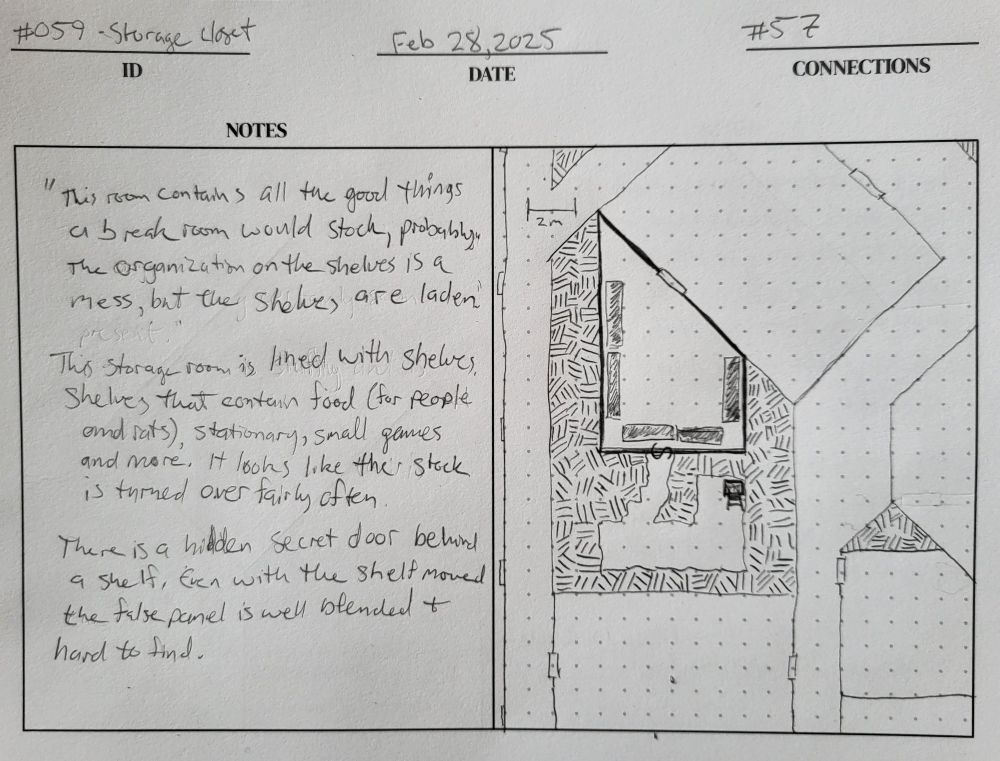 #059 - Storage Closet
Feb 28, 2025
#57
ID
DATE
CONNECTIONS
NOTES
"This room contains all the good things
a break room would stock, probably.
The organization on the shelves is a
mess, but the shelves are laden"
present"
This storage room is lined with shelves.
Shelves that contain food (for people
and rats), stationary, small games
and more. It looks like their stock
is turned over fairly often.
There is a hidden secret door behind
a shelf. Even with the shelf moved
the false panel is well blended +
hard to find.
2m
S